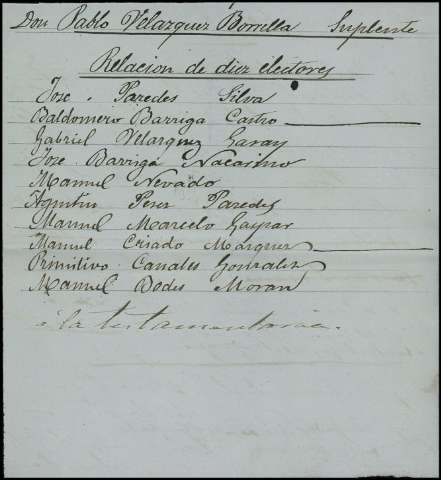 Don Pablo Velazquez Borrella Suplente
Relacion de diez electores
Jose Paredes Silva
Baldomero Barriga Castro
Gabriel Velazquez Garay
Jose Barriga
Manuel Nevado
Agustin Perez Paredes
Manuel Marcelo Gaspar
Manuel Criado Marquez
Primitivo Canales Gonzalez
Manuel Dodes Moran
á la testamentaria.